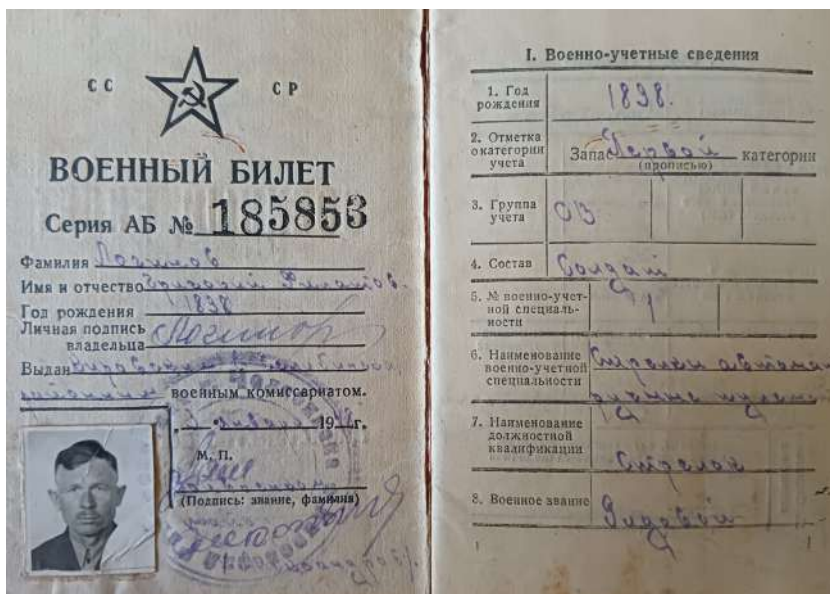 СС СР
ВОЕННЫЙ БИЛЕТ
Серия АБ № 185853
Фамилия Логинов
Имя и отчество
Год рождения 1898
Личная подпись
владельца Логинов
Выдан
районным военным комиссариатом.
января 19 г.
М. П.
(Подпись: звание, фамилия)
I. Военно-учетные сведения
1. Год
рождения
1898.
2. Отметка
о категории
учета
Запас Первой категории
(прописью)
3. Группа
учета
ОВ
4. Состав
Солдат
5. № военно-учет-
ной специаль-
ности
1
6. Наименование
военно-учетной
специальности
Стрелки
7. Наименование
должностной
квалификации
Стрелок
8. Военное звание
Рядовой